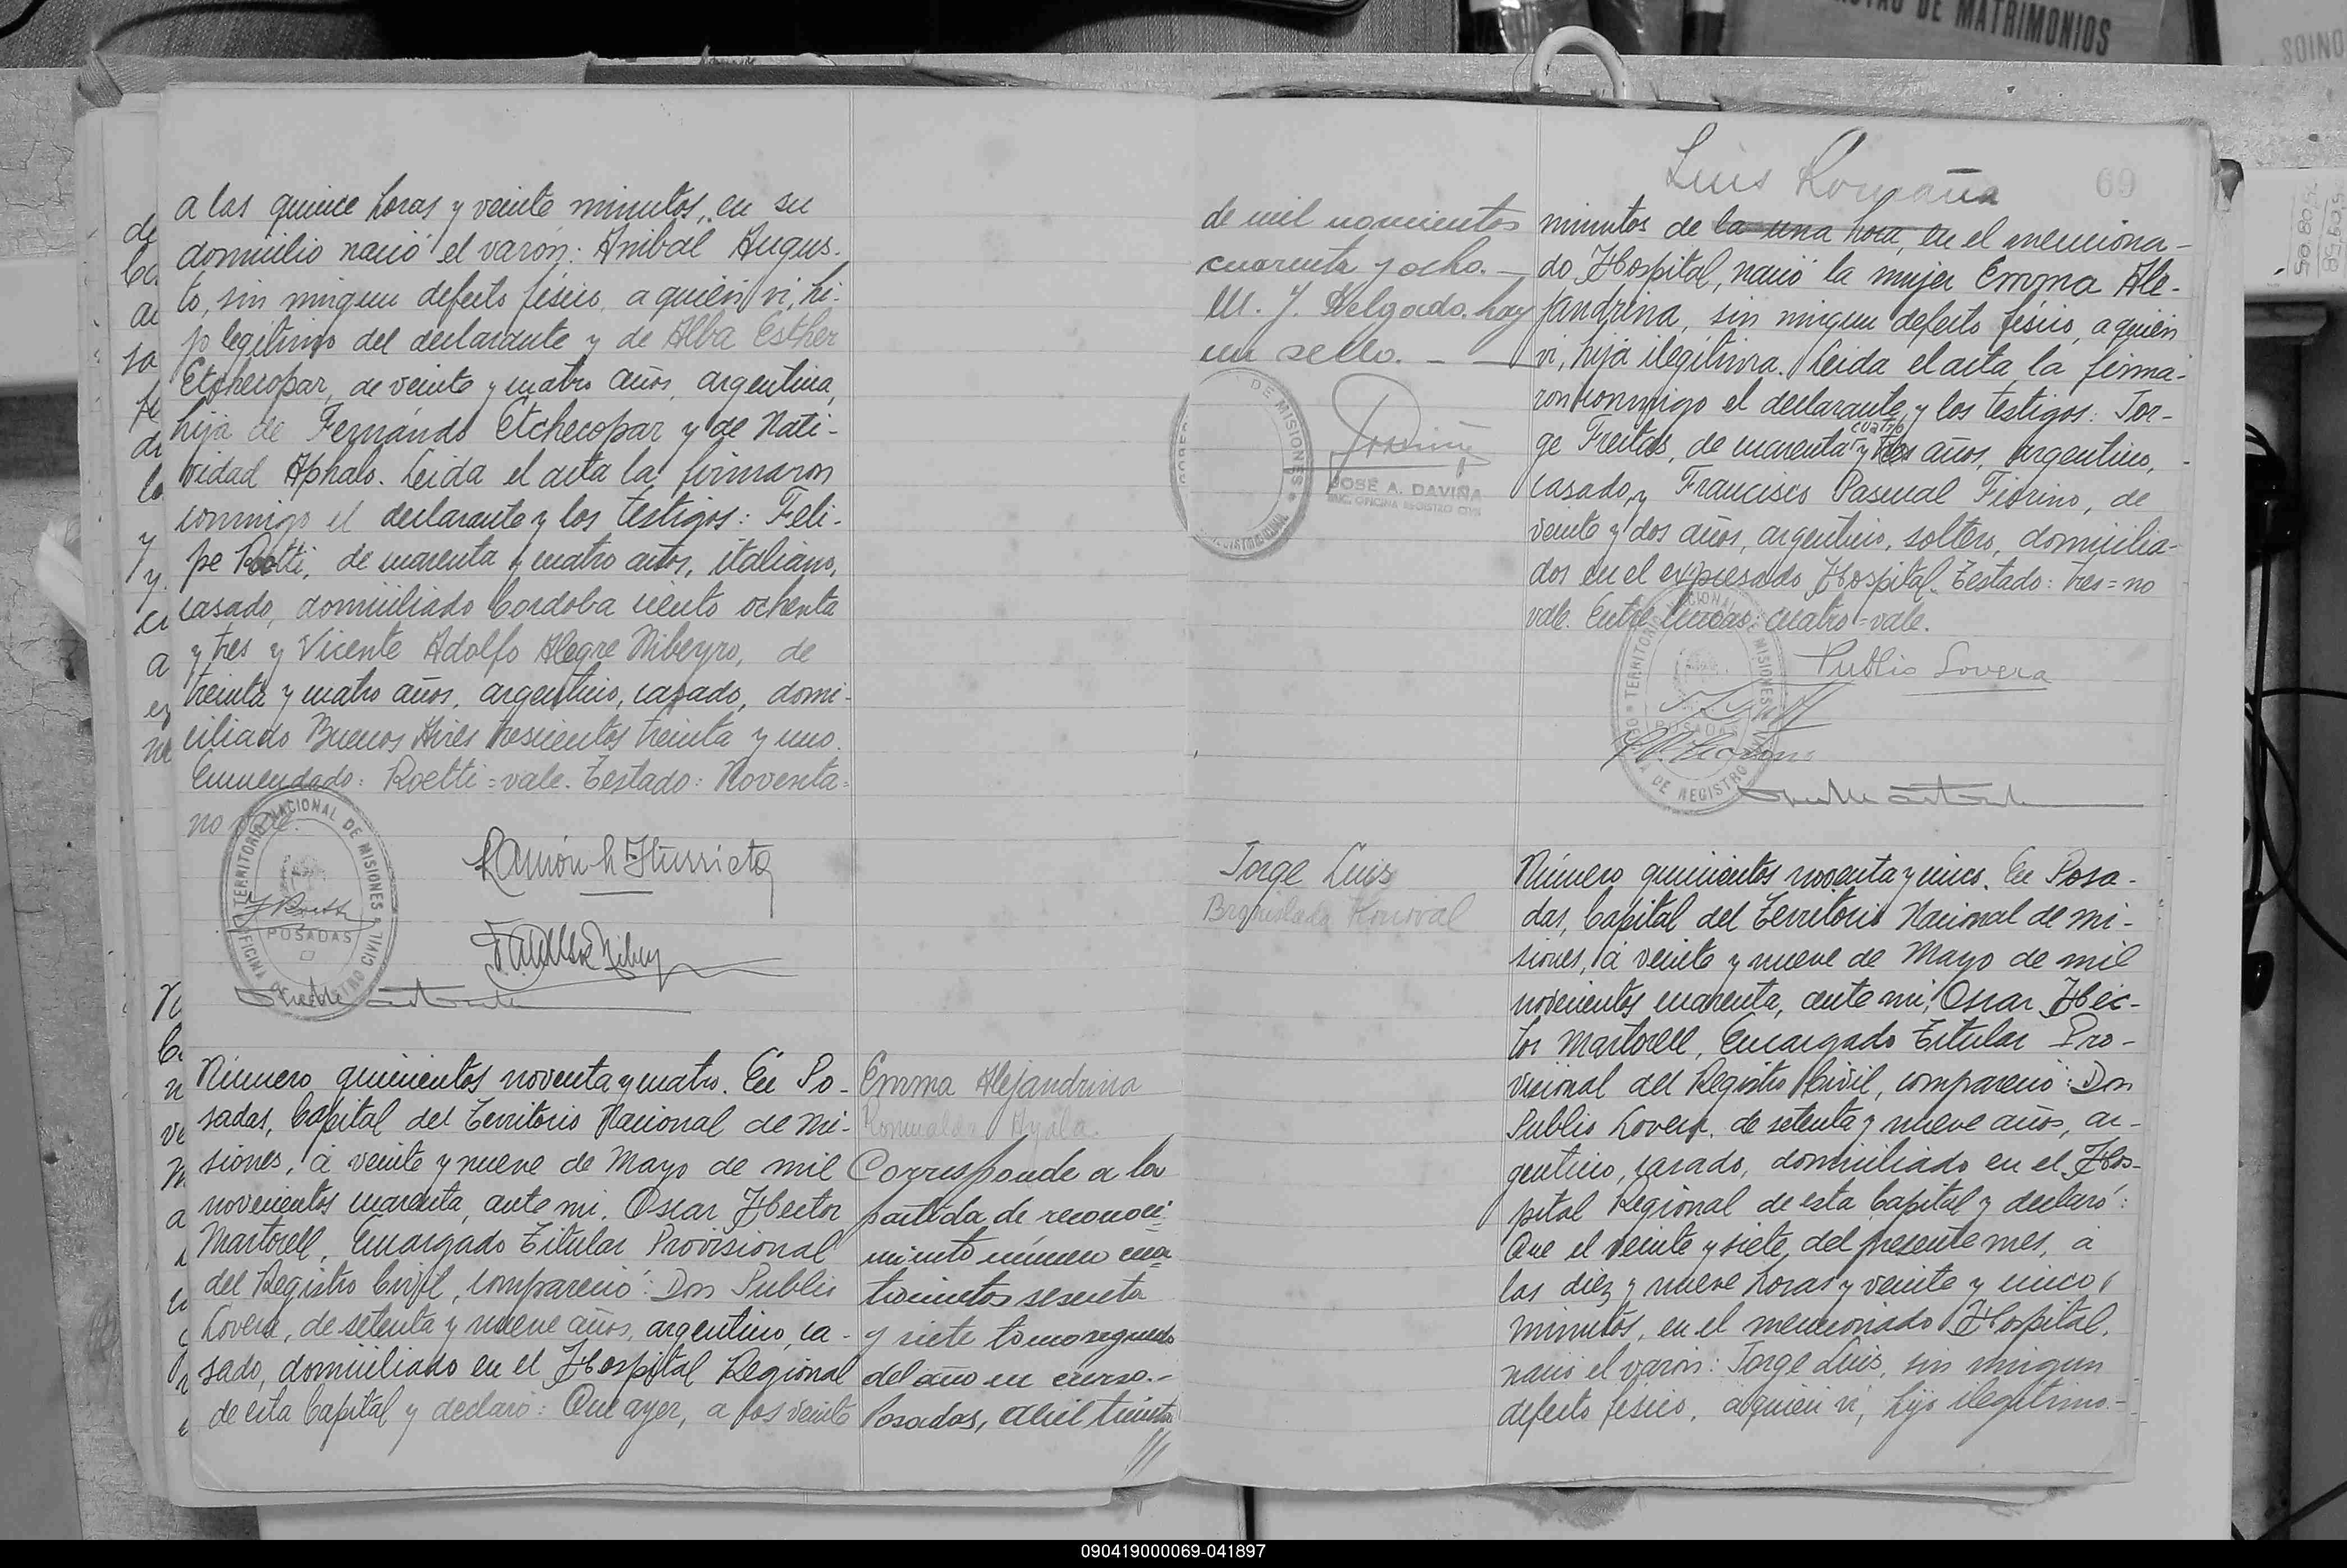 DE MATRIMONIOS
a las quince horas y veinte minutos, en su
domicilio nació el varón: Anibal Augus-
to, sin ningun defecto fisico, a quien vi, hi-
jo legitimo del declarante y de Alba Esther
Etchecopar, de veinte y cuatro años, argentina,
hija de Fernándo Etchecopar y de Nati-
vidad Aphalo. Leida el acta la firmaron
conmigo el declarante y los testigos: Feli-
pe Roetti, de cuarenta y cuatro años, italiano,
casado, domiciliado Cordoba ciento ochenta
y tres y Vicente Adolfo Alegre Nibeyro, de
treinta y cuatro años, argentino, casado, domi-
ciliado Buenos Aires trescientos treinta y uno.
Enmendado: Roetti=vale. Testado: Noventa=
no vale.
TERRITORIO NACIONAL DE MISIONES
POSADAS
OFICINA DE REGISTRO CIVIL
Número quinientos noventa y cuatro. En Po-
sadas, Capital del Territorio Nacional de Mi-
siones, á veinte y nueve de Mayo de mil
novecientos cuarenta, ante mi, Oscar Hector
Martorell, Encargado Titular Provisional
del Registro Civil, compareció: Don Publio
Lovera, de setenta y nueve años, argentino, ca-
sado, domiciliado en el Hospital Regional
de esta Capital y declaró: Que ayer, a los veinte
Emma Alejandrina
Romualda Ayala.
Corresponde a la
partida de reconoci=
miento número cua=
trocientos sesenta
y siete tomo segundo
del año en curso.-
Posadas, Abril treinta
///
de mil novecientos
cuarenta y ocho. -
M. J. Delgado. hay
un sello. - -
DE MISIONES
JOSÉ A. DAVIÑA
ENC. OFICINA REGISTRO CIVIL
Luis Romaña
69
minutos de la una hora, en el menciona-
do Hospital, nació la mujer Emma Ale-
jandrina, sin ningun defecto fisico, a quien
vi, hija ilegitima. Leida el acta la firma-
ron conmigo el declarante y los testigos: Jor-
cuatro
ge Freitas, de cuarenta y tres años, argentino,
casado, y Francisco Pascual Fiorino, de
veinte y dos años, argentino, soltero, domicilia-
dos en el expresado Hospital. Testado: tres=no
vale. Entre lineas: cuatro=vale.
Publio Lovera
TERRITORIO NACIONAL DE MISIONES
POSADAS
DE REGISTRO
Jorge Luis
Número quinientos noventa y cinco. En Posa-
das, Capital del Territorio Nacional de Mi-
siones, á veinte y nueve de Mayo de mil
novecientos cuarenta, ante mi, Oscar Héc-
tor Martorell, Encargado Titular Pro-
visional del Registro Civil, compareció: Don
Publio Lovera, de setenta y nueve años, ar-
gentino, casado, domiciliado en el Hos-
pital Regional de esta Capital y declaró:
Que el veinte y siete del presente mes, a
las diez y nueve horas y veinte y cinco
minutos, en el mencionado Hospital,
nació el varón: Jorge Luis, sin ningun
defecto fisico, a quien vi, hijo ilegitimo.-
090419000069-041897